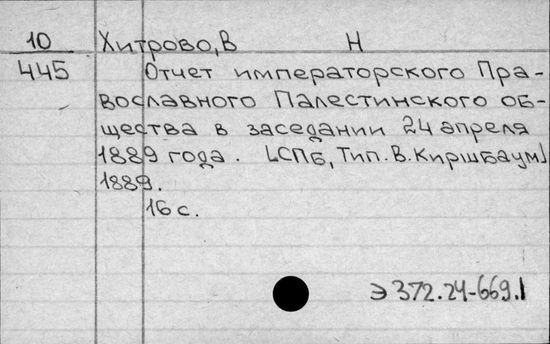 10 Хитрово, В Н
445 Отчет императорского Пра-
вославного Палестинского об-
щества в заседании 24 апреля
1889 года. [СПБ, Тип. В. Киршбаум]
1889.
16 с.
Э 372.24-669.1